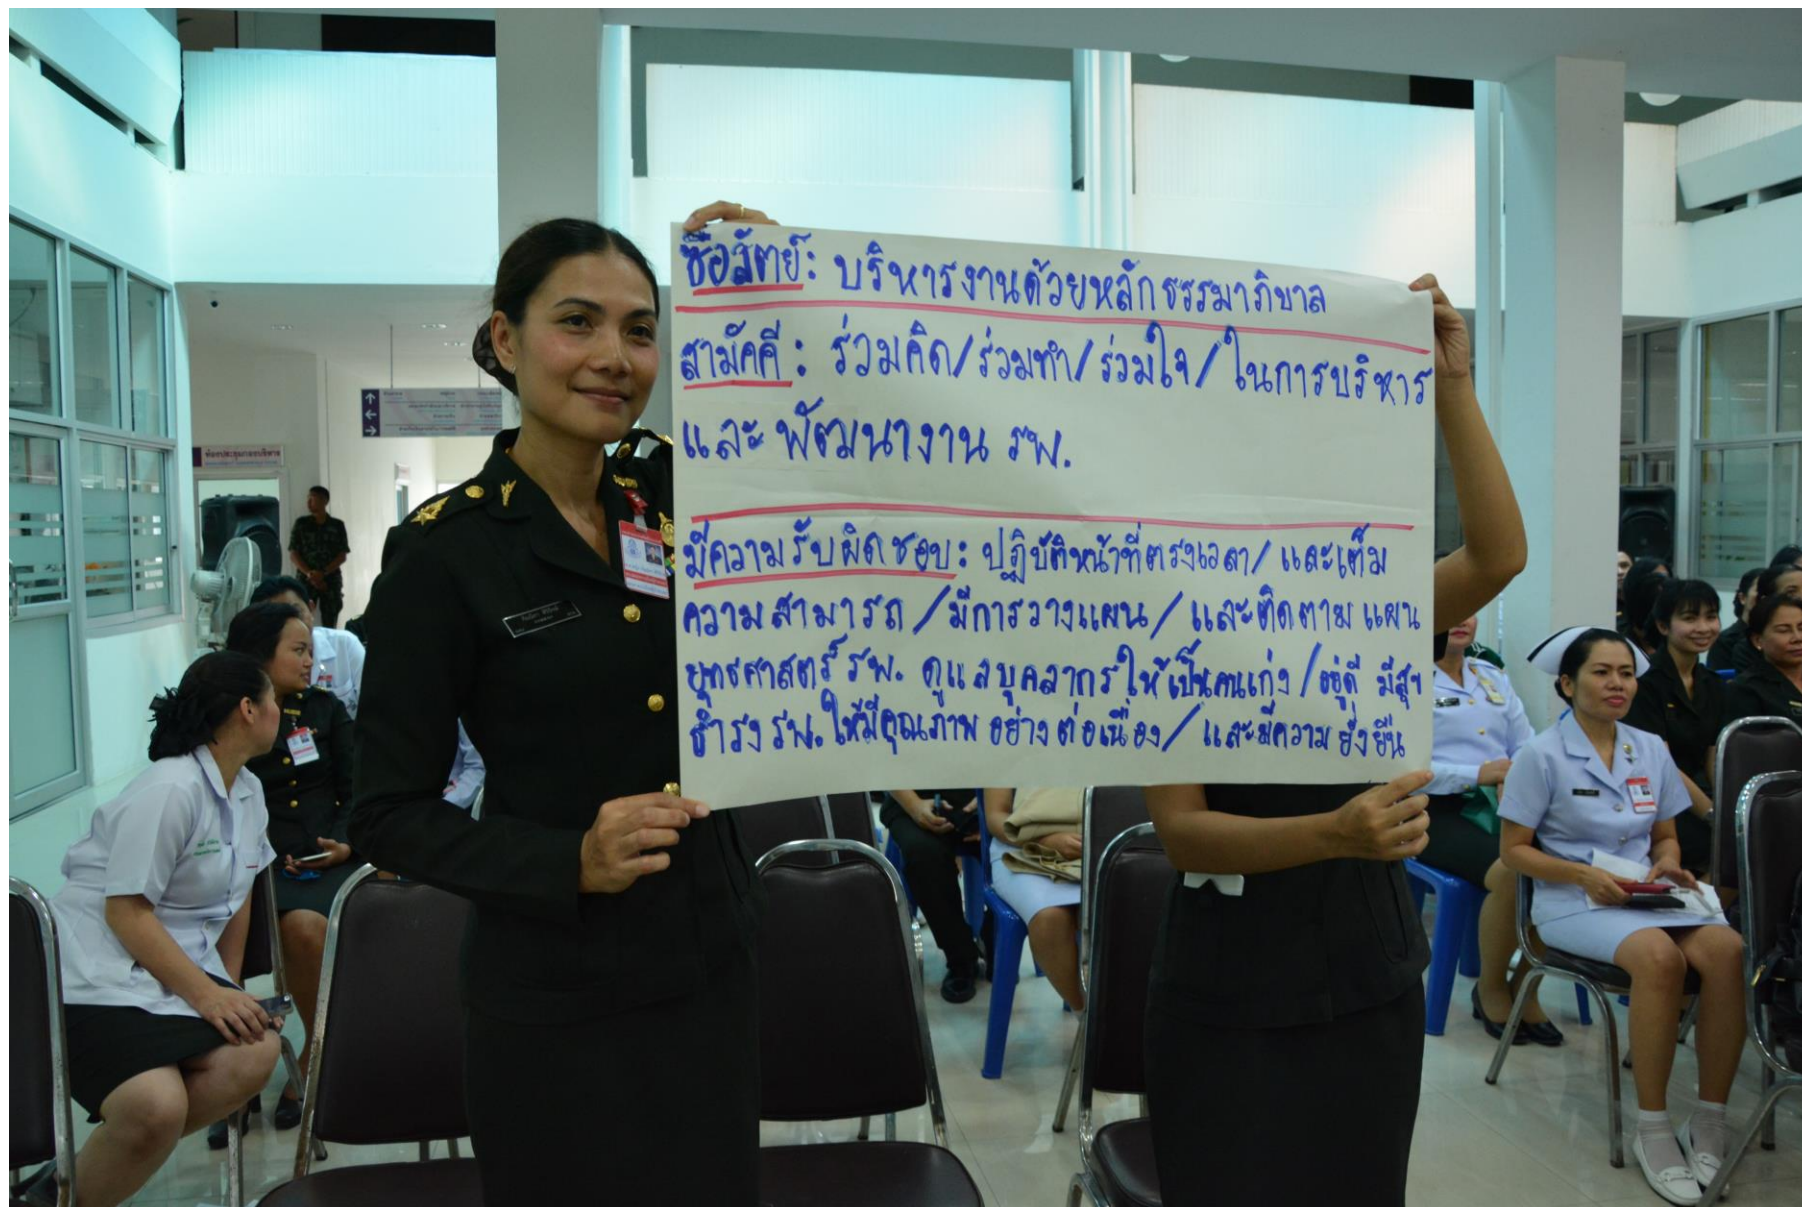 ซื่อสัตย์: บริหารงานด้วยหลักธรรมาภิบาล
สามัคคี: ร่วมคิด/ร่วมทำ/ร่วมใจ/ในการบริหาร
และพัฒนางาน รพ.
มีความรับผิดชอบ: ปฏิบัติหน้าที่ตรงเวลา/และเต็ม
ความสามารถ/มีการวางแผน/และติดตามแผน
ยุทธศาสตร์ รพ. ดูแลบุคลากรให้เป็นคนเก่ง/อยู่ดี มีสุข
ธำรง รพ. ให้มีคุณภาพ อย่างต่อเนื่อง/และมีความยั่งยืน
ห้องประชุมกองบริหาร